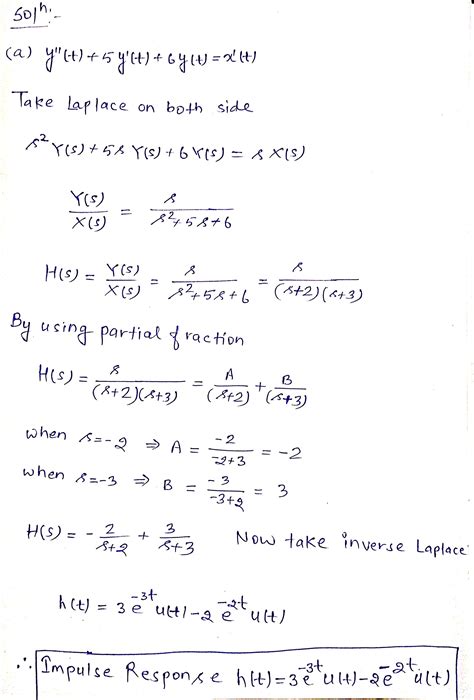 Solⁿ:-
(a) y''(t) + 5 y'(t) + 6 y(t) = x'(t)
Take Laplace on both side
s² Y(s) + 5s Y(s) + 6 Y(s) = s X(s)
Y(s)/X(s) = s/(s²+5s+6)
H(s) = Y(s)/X(s) = s/(s²+5s+6) = s/((s+2)(s+3))
By using partial fraction
H(s) = s/((s+2)(s+3)) = A/(s+2) + B/(s+3)
when s=-2 ⇒ A = -2/(-2+3) = -2
when s=-3 ⇒ B = -3/(-3+2) = 3
H(s) = - 2/(s+2) + 3/(s+3) Now take inverse Laplace
h(t) = 3 e^(-3t) u(t) - 2 e^(-2t) u(t)
∴ Impulse Response h(t) = 3 e^(-3t) u(t) - 2 e^(-2t) u(t)